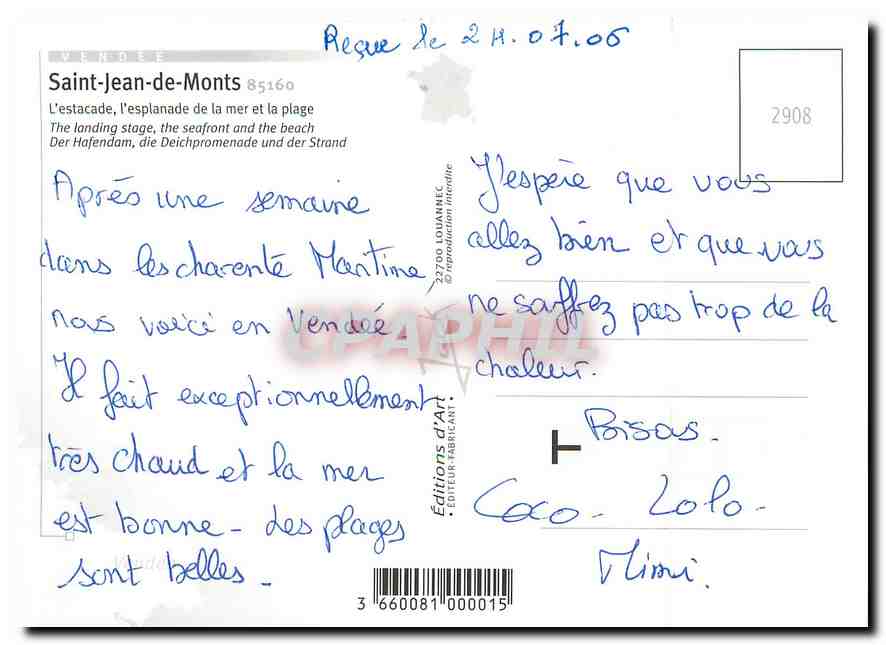 Reçue le 24.07.06
VENDÉE
Saint-Jean-de-Monts 85160
L'estacade, l'esplanade de la mer et la plage
The landing stage, the seafront and the beach
Der Hafendam, die Deichpromenade und der Strand
2908
Après une semaine
dans les charente Maritime
nous voici en Vendée
Il fait exceptionnellement
très chaud et la mer
est bonne - des plages
sont belles -
22700 LOUANNEC
© reproduction interdite
Éditions d'Art
• ÉDITEUR-FABRICANT •
J'espère que vous
allez bien et que vous
ne souffrez pas trop de la
chaleur.
Bisous -
Coco - Lolo -
Mimi.
CPAPHIL
Vendée
3 660081 000015